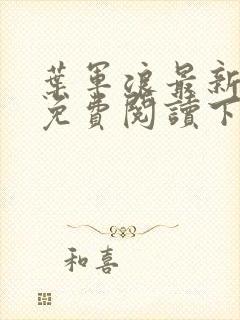 葉軍浪最新
免費閱讀下
和喜